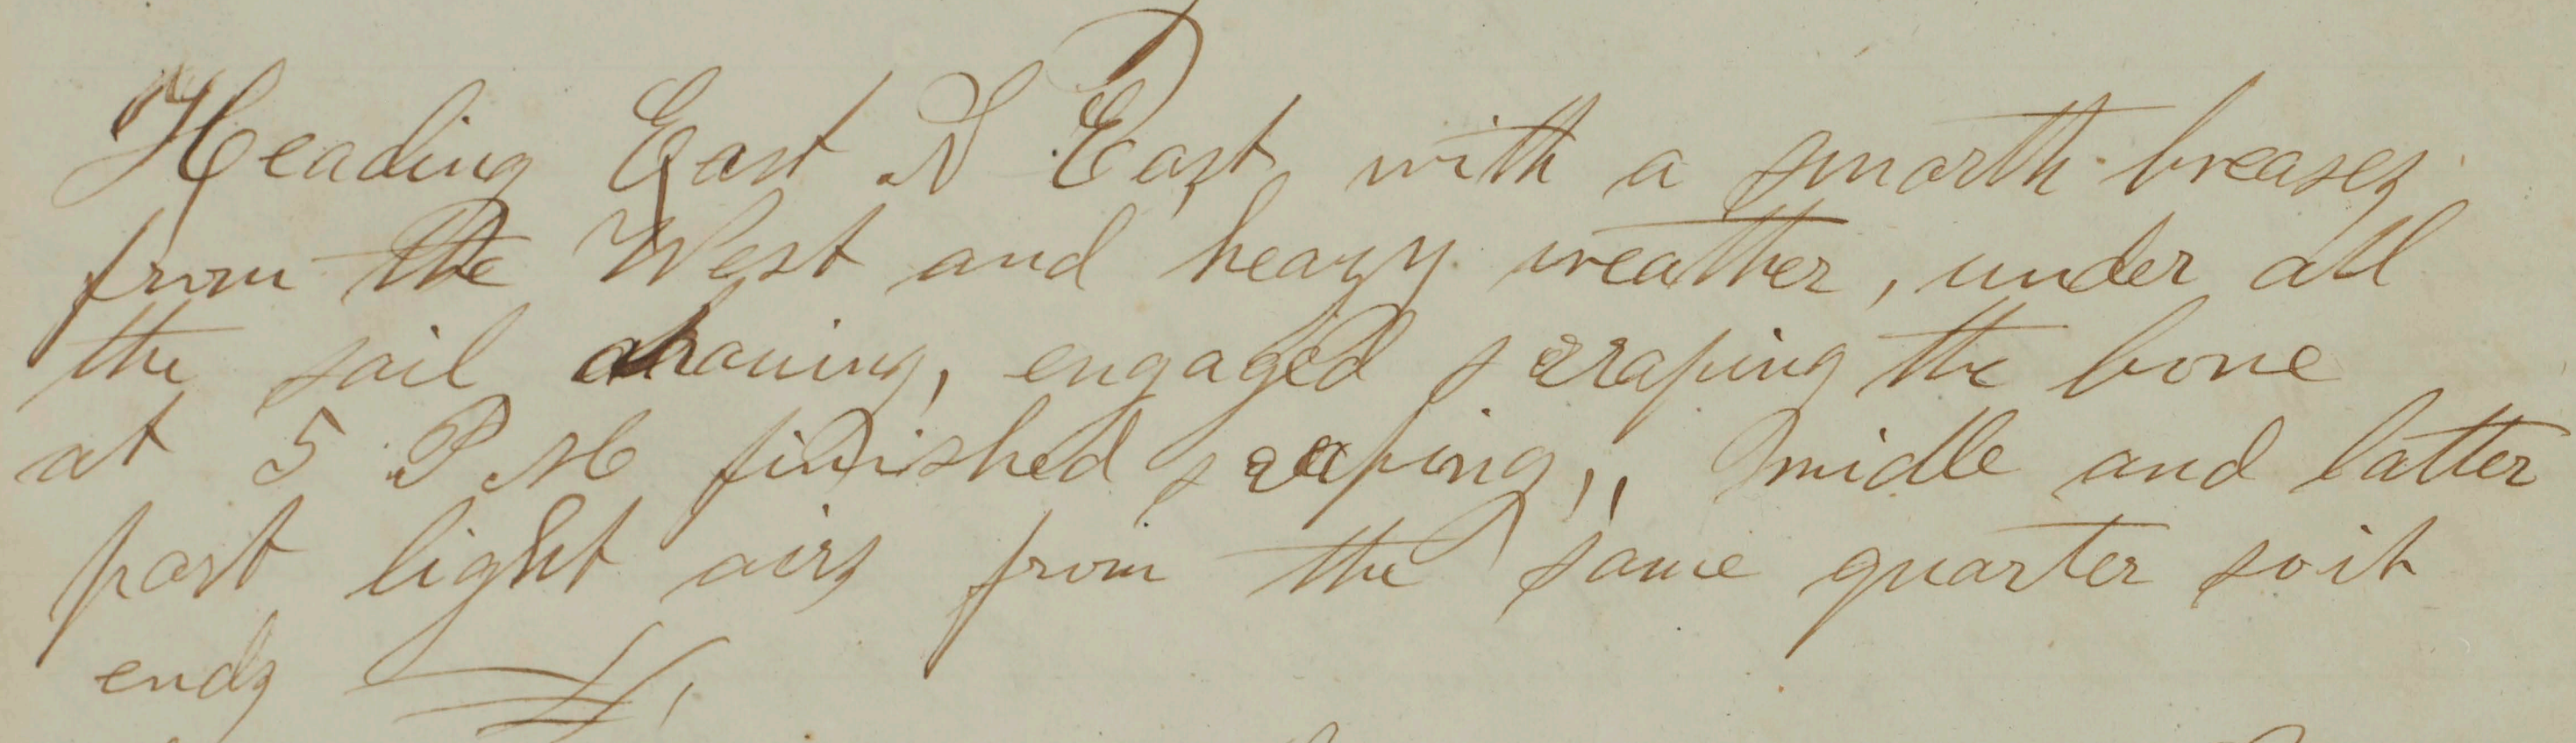 Heading East S East with a smarth breases
from the West and heavy weather, under all
the sail drawing, engaged scraping the bone
at 5 P M finished scraping,, midle and latter
part light airs from the same quarter so it
ends